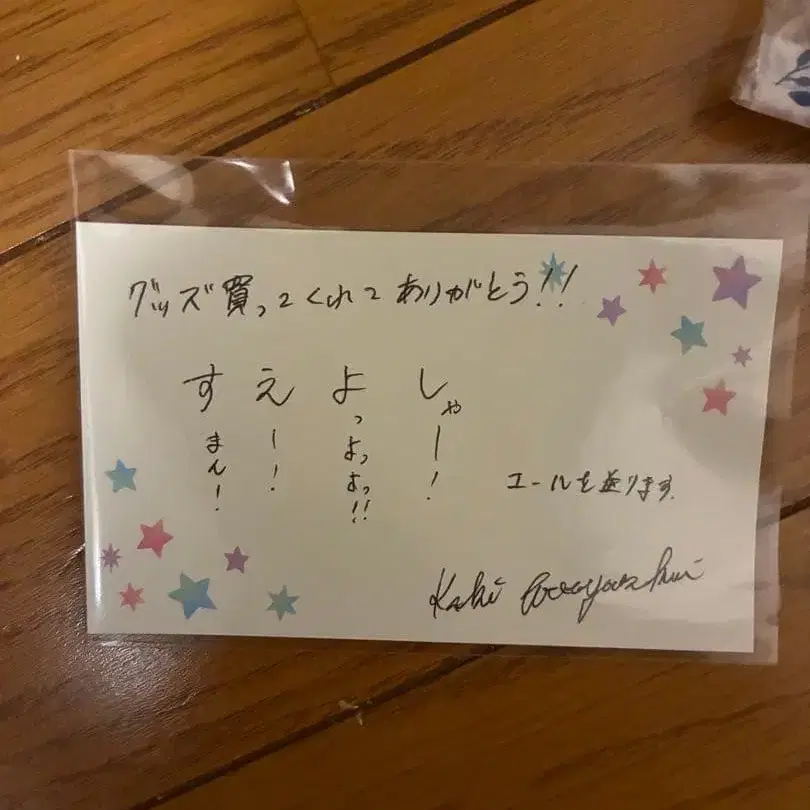 グッズ買ってくれてありがとう!!
しゃー!
よっよっよっ!!
えー!
すまん!
エールを送ります.